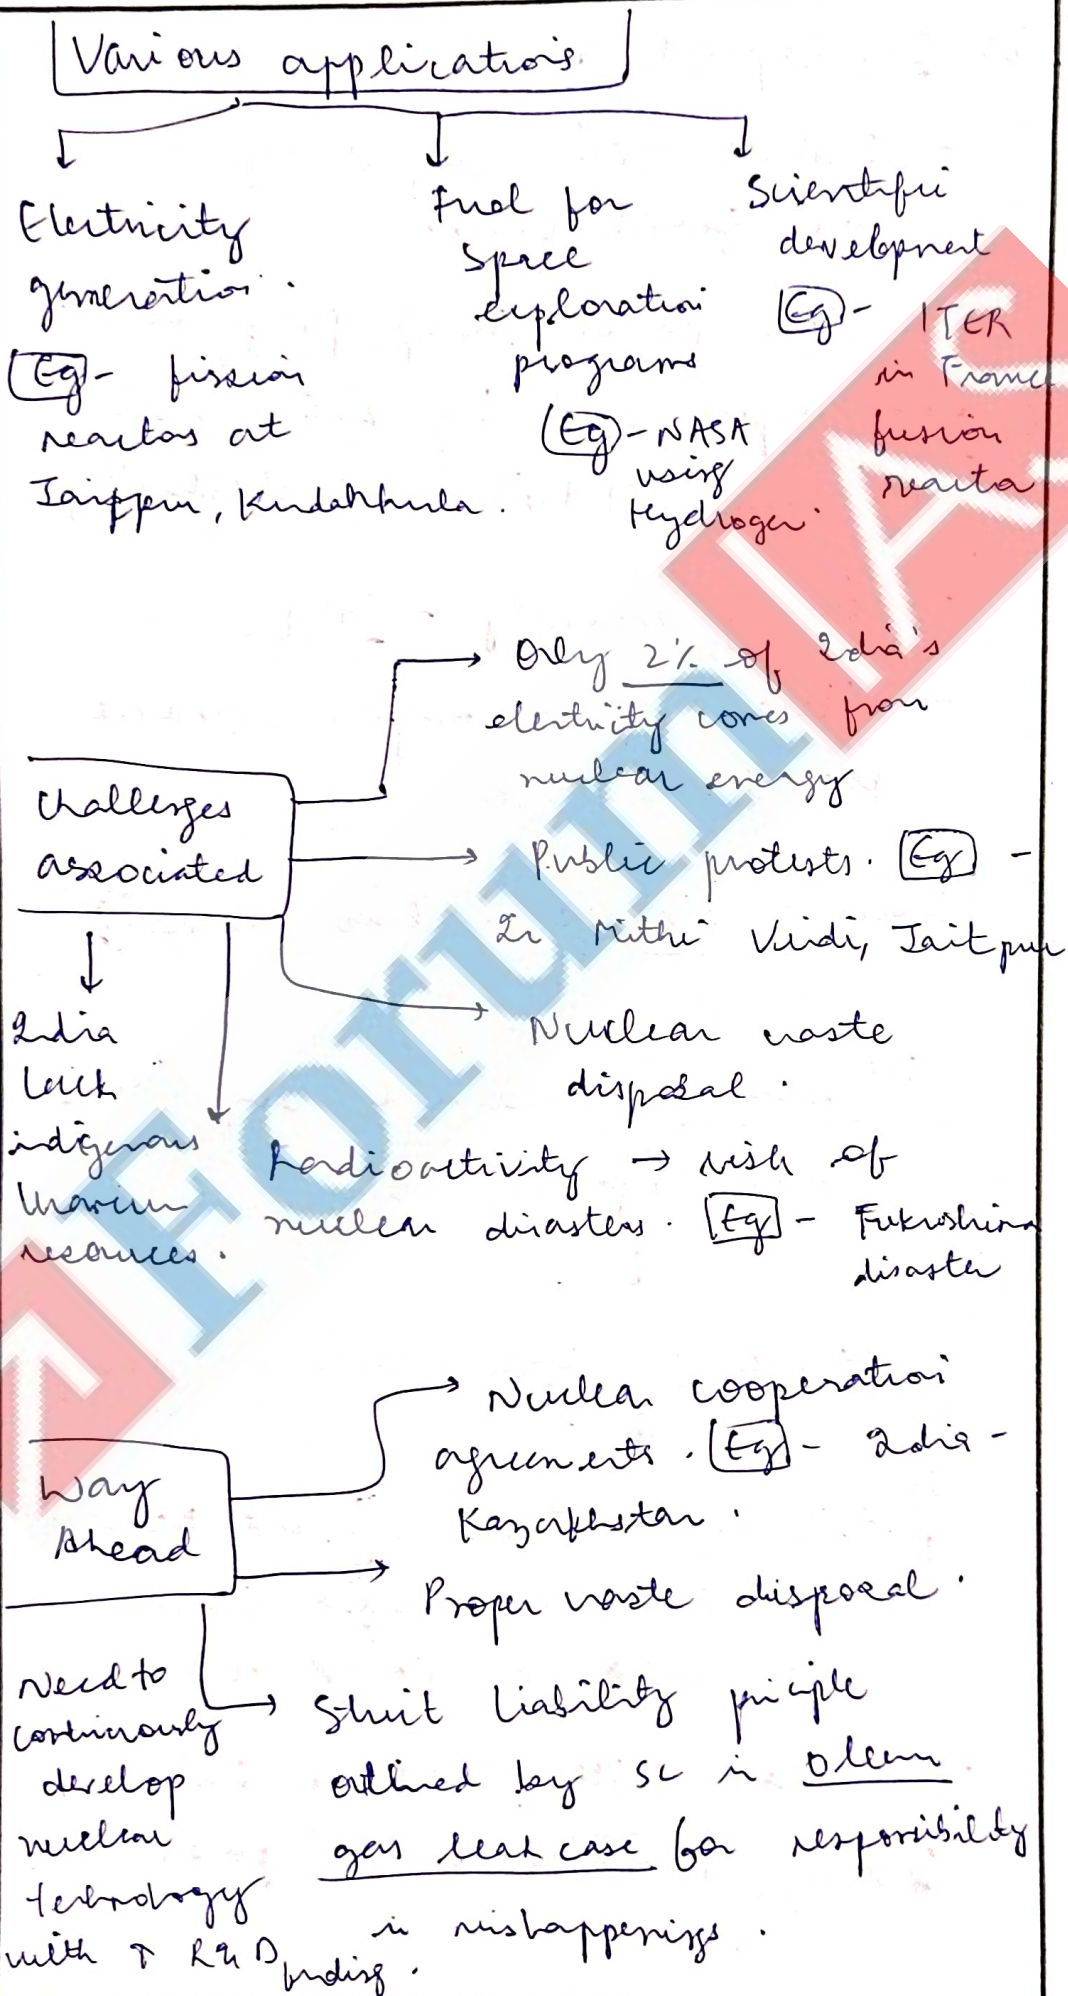 Various applications
Electricity
generation.
Eg - fission
reactors at
Jaitpur, Kudankula.
Fuel for
Space
exploration
programs
Eg - NASA
using
Hydrogen.
Scientific
development
Eg - ITER
in France
fusion
reactor
Challenges
associated
Only 2% of India's
electricity comes from
nuclear energy
Public protests. Eg -
In Mithi Virdi, Jaitpur
Nuclear waste
disposal.
Radioactivity → risk of
nuclear disasters. Eg - Fukushima
disaster
India
lack
indigenous
Uranium
resources.
Way
Ahead
Nuclear cooperation
agreements. Eg - India -
Kazakhstan.
Proper waste disposal.
Strict liability principle
outlined by SC in Oleum
gas leak case for responsibility
in mishappenings.
Need to
continuously
develop
nuclear
technology
with ↑ R&D funding.
ForumIAS